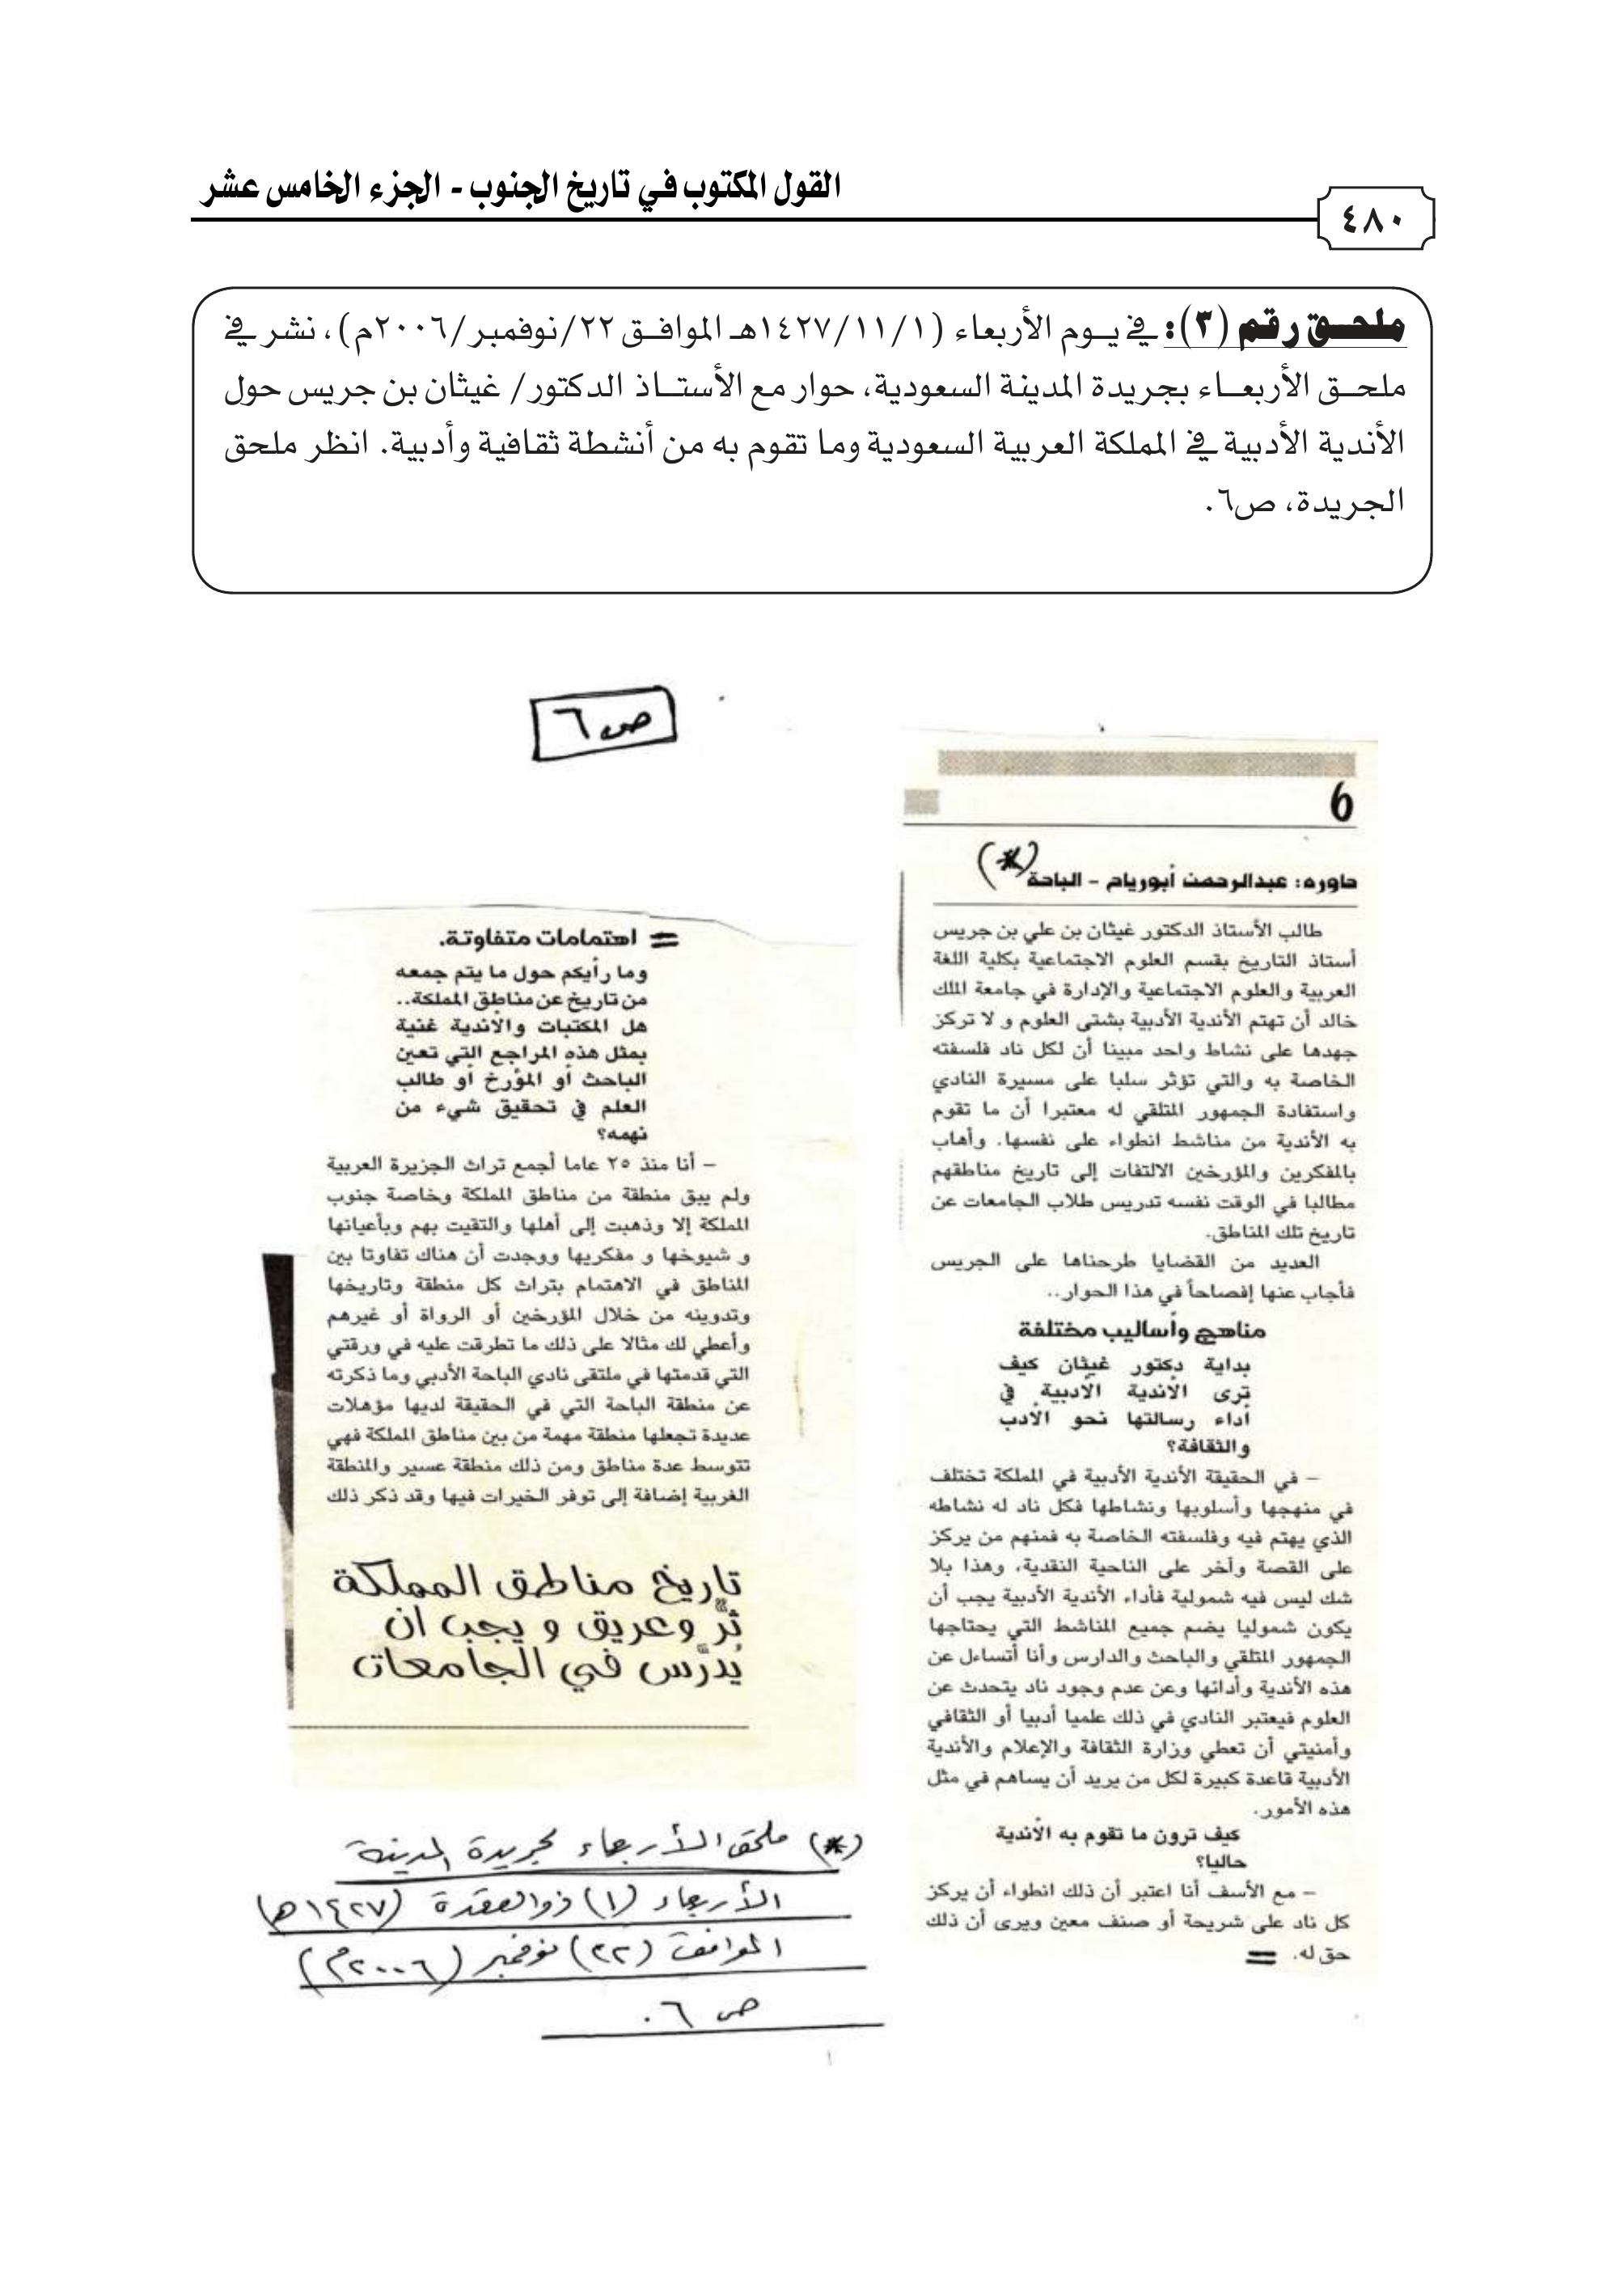 القول المكتوب في تاريخ الجنوب - الجزء الخامس عشر
٤٨٠
ملحـــق رقم (٣): في يـوم الأربعاء (١٤٢٧/١١/١هـ الموافـق ٢٢/نوفمبر/٢٠٠٦م)، نشر في
ملحـق الأربعـاء بجريدة المدينة السعودية، حوار مع الأستـاذ الدكتور/ غيثان بن جريس حول
الأندية الأدبية في المملكة العربية السعودية وما تقوم به من أنشطة ثقافية وأدبية. انظر ملحق
الجريدة، ص٦.
ص ٦
6
حاوره: عبدالرحمن أبورياح - الباحة (*)
طالب الأستاذ الدكتور غيثان بن علي بن جريس
أستاذ التاريخ بقسم العلوم الاجتماعية بكلية اللغة
العربية والعلوم الاجتماعية والإدارة في جامعة الملك
خالد أن تهتم الأندية الأدبية بشتى العلوم و لا تركز
جهدها على نشاط واحد مبينا أن لكل ناد فلسفته
الخاصة به والتي تؤثر سلبا على مسيرة النادي
واستفادة الجمهور المتلقي له معتبرا أن ما تقوم
به الأندية من مناشط انطواء على نفسها. وأهاب
بالمفكرين والمؤرخين الالتفات إلى تاريخ مناطقهم
مطالبا في الوقت نفسه تدريس طلاب الجامعات عن
تاريخ تلك المناطق.
العديد من القضايا طرحناها على الجريس
فأجاب عنها إفصاحاً في هذا الحوار..
مناهج وأساليب مختلفة
بداية دكتور غيثان كيف
ترى الأندية الأدبية في
أداء رسالتها نحو الأدب
والثقافة؟
– في الحقيقة الأندية الأدبية في المملكة تختلف
في منهجها وأسلوبها ونشاطها فكل ناد له نشاطه
الذي يهتم فيه وفلسفته الخاصة به فمنهم من يركز
على القصة وآخر على الناحية النقدية، وهذا بلا
شك ليس فيه شمولية فأداء الأندية الأدبية يجب أن
يكون شموليا يضم جميع المناشط التي يحتاجها
الجمهور المتلقي والباحث والدارس وأنا أتساءل عن
هذه الأندية وأدائها وعن عدم وجود ناد يتحدث عن
العلوم فيعتبر النادي في ذلك علميا أدبيا أو الثقافي
وأمنيتي أن تعطي وزارة الثقافة والإعلام والأندية
الأدبية قاعدة كبيرة لكل من يريد أن يساهم في مثل
هذه الأمور.
كيف ترون ما تقوم به الأندية
حاليا؟
– مع الأسف أنا اعتبر أن ذلك انطواء أن يركز
كل ناد على شريحة أو صنف معين ويرى أن ذلك
حق له. =
= اهتمامات متفاوتة.
وما رأيكم حول ما يتم جمعه
من تاريخ عن مناطق المملكة..
هل المكتبات والأندية غنية
بمثل هذه المراجع التي تعين
الباحث أو المؤرخ أو طالب
العلم في تحقيق شيء من
نهمه؟
– أنا منذ ٢٥ عاما أجمع تراث الجزيرة العربية
ولم يبق منطقة من مناطق المملكة وخاصة جنوب
المملكة إلا وذهبت إلى أهلها والتقيت بهم وبأعيانها
و شيوخها و مفكريها ووجدت أن هناك تفاوتا بين
المناطق في الاهتمام بتراث كل منطقة وتاريخها
وتدوينه من خلال المؤرخين أو الرواة أو غيرهم
وأعطي لك مثالا على ذلك ما تطرقت عليه في ورقتي
التي قدمتها في ملتقى نادي الباحة الأدبي وما ذكرته
عن منطقة الباحة التي في الحقيقة لديها مؤهلات
عديدة تجعلها منطقة مهمة من بين مناطق المملكة فهي
تتوسط عدة مناطق ومن ذلك منطقة عسير والمنطقة
الغربية إضافة إلى توفر الخيرات فيها وقد ذكر ذلك
تاريخ مناطق المملكة
ثرّ وعريق و يجب ان
يُدرّس في الجامعات
(*) ملحق الأربعاء بجريدة المدينة
الأربعاء (١) ذو القعدة (١٤٢٧هـ)
الموافق (٢٢) نوفمبر (٢٠٠٦م)
ص ٦.